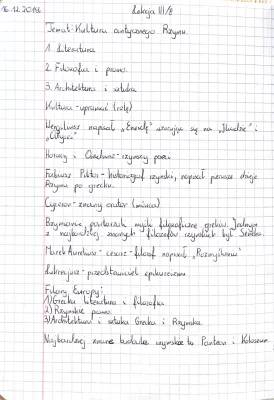 16.12.2019r. Lekcja III/8
Temat: Kultura antycznego Rzymu.
1. Literatura
2. Filozofia i prawo.
3. Architektura i sztuka
Kultura - uprawiać (rolę)
Wergiliusz napisał „Eneidę” wzorując się na „Iliadzie” i
„Odysei”
Horacy i Owidiusz - rzymscy poeci
Fabiusz Piktor - historiograf rzymski, napisał pierwsze dzieje
Rzymu po grecku.
Cyceron - znany orator (mówca)
Rzymianie powtarzali myśli filozoficzne greków. Jednym
z najbardziej znanych filozofów rzymskich był Seneka.
Marek Aureliusz - cesarz - filozof napisał „Rozmyślania”
Lukrecjusz - przedstawiciel epikureizmu
Filary Europy:
1) Grecka literatura i filozofia
2) Rzymskie prawo
3) Architektura i sztuka Grecka i Rzymska.
Najbardziej znane budowle rzymskie to Panteon i Koloseum